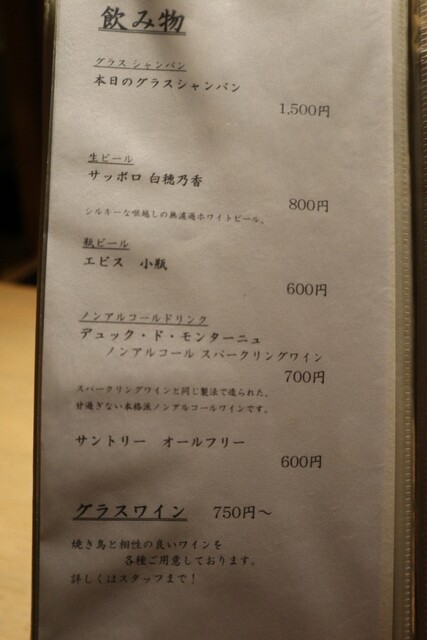 飲み物
グラスシャンパン
本日のグラスシャンパン
1,500円
生ビール
サッポロ 白穂乃香
800円
シルキーな喉越しの無濾過ホワイトビール。
瓶ビール
エビス 小瓶
600円
ノンアルコールドリンク
デュック・ド・モンターニュ
ノンアルコール スパークリングワイン
700円
スパークリングワインと同じ製法で造られた、
甘過ぎない本格派ノンアルコールワインです。
サントリー オールフリー
600円
グラスワイン 750円～
焼き鳥と相性の良いワインを
各種ご用意しております。
詳しくはスタッフまで！